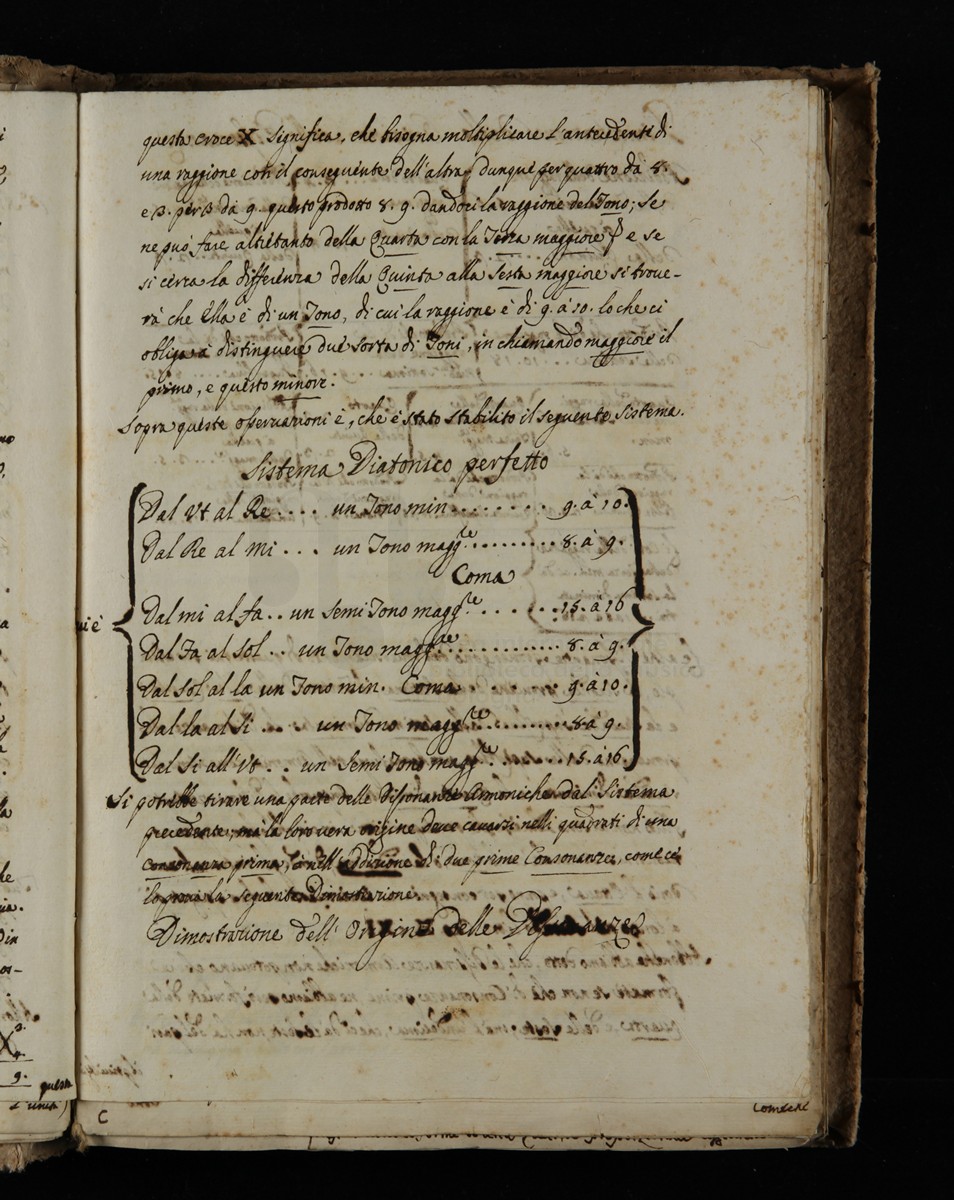 questa croce X significa, che bisogna moltiplicare l'antecedente di
una raggione con il conseguente dell'altra, dunque per quattro dà 8.
e 3. per 3 dà 9. questo prodotto 8. 9. dandoci la raggione del Tono; se
ne può fare altretanto della Quarta con la Terza maggiore e se
si cerca la differenza della Quinta alla Sesta maggiore si troue-
rà che ella è di un Tono, di cui la raggione è di 9. à 10. lo che ci
obliga à distinguere due sorta di Toni, in chiamando maggiore il
primo, e questo minore.
Sopra queste osservazioni è, che è stato stabilito il seguente sistema.
Sistema Diatonico perfetto
Dal Vt al Re .... un Tono min ........ 9. à 10.
Dal Re al Mi ... un Tono magg.re ......... 8. à 9.
Coma
Dal mi al fa .. un semi Tono magg.re ...... 15. à 16
Dal Fa al sol .. un Tono magg.re ............ 8. à 9.
Dal sol al la un Tono min. Coma ...... 9. à 10.
Dal la al si .... un Tono magg.re ......... 8 à 9.
Dal si all'Vt .. un semi Tono magg.re ....... 15. à 16.
Si potrebbe tirare una parte delle Dissonanze Armoniche dal Sistema
precedente, mà la loro vera origine deve cauarsi nelli quadrati di una
consonanza prima, ò nell'addizione di due prime Consonanze, come ce
lo proua la seguente Dimostrazione.
Dimostrazione dell'Origine delle Dissonanze
C
Come se
9.
questa